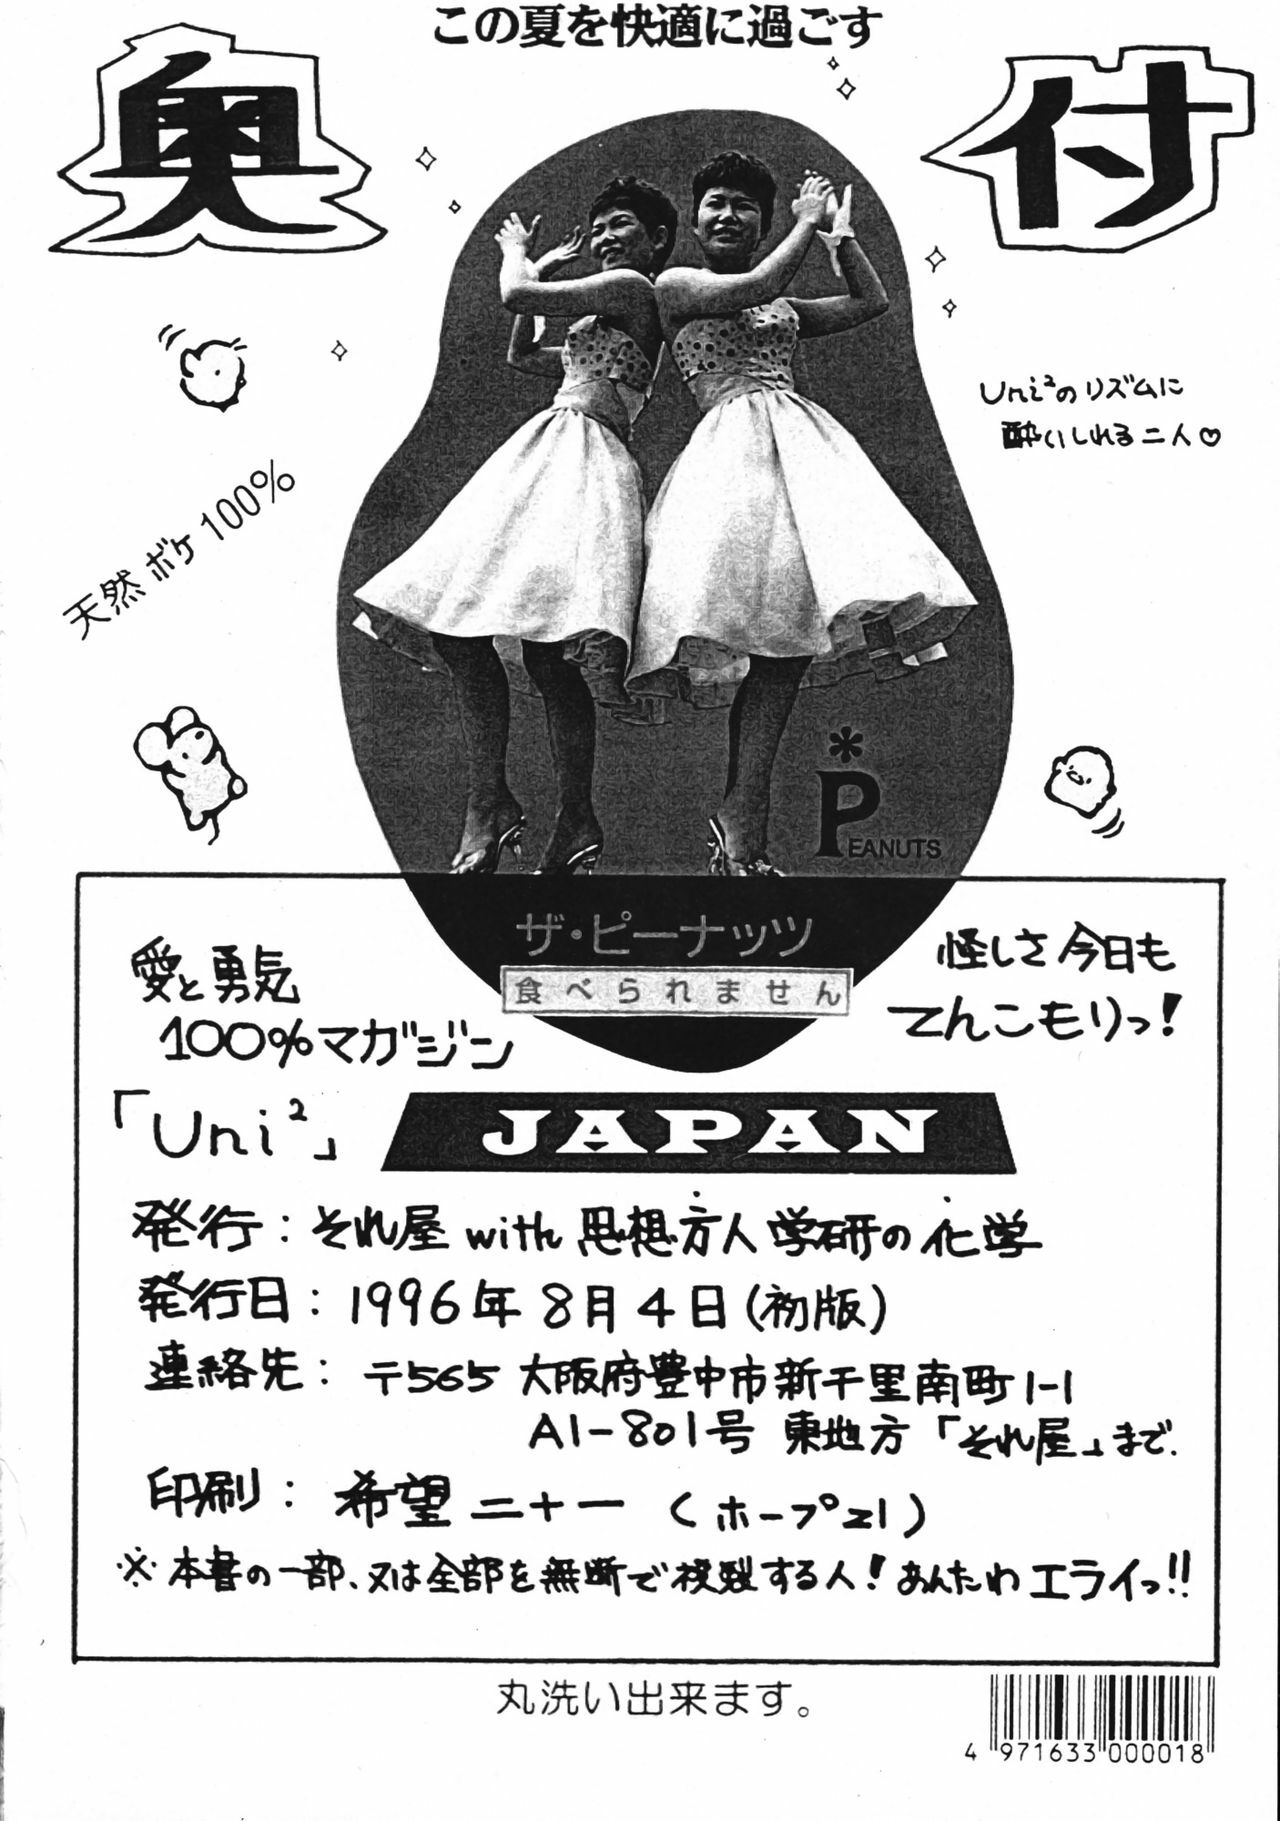 この夏を快適に過ごす
奥付
Uni²のリズムに
酔いしれる二人♡
天然ボケ100%
*PEANUTS
ザ・ピーナッツ
食べられません
愛と勇気
100%マガジン
「Uni²」
怪しさ今日も
てんこもりっ!
JAPAN
発行:それ屋with思想方人学研の化学
発行日:1996年8月4日(初版)
連絡先:〒565 大阪府豊中市新千里南町1-1
A1-801号 東地方「それ屋」まで.
印刷:希望二十一(ホープ21)
※本書の一部、又は全部を無断で複製する人!あんたわエライっ!!
丸洗い出来ます。
4 971633 000018